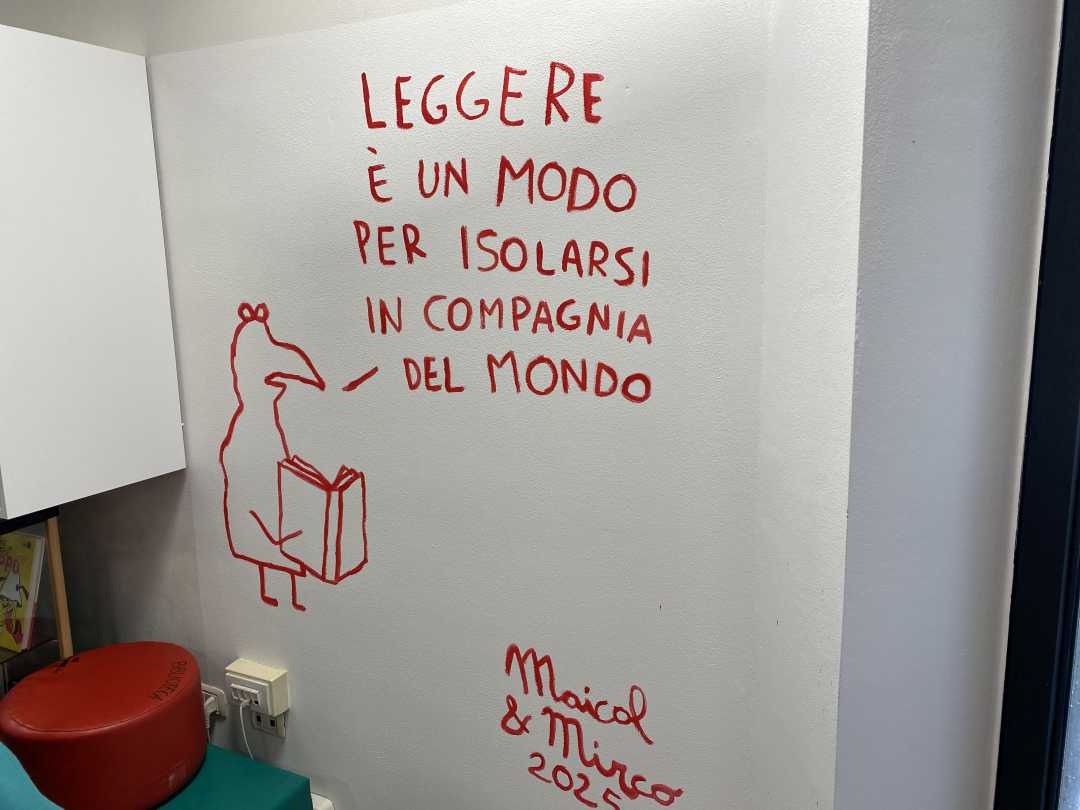 LEGGERE
È UN MODO
PER ISOLARSI
IN COMPAGNIA
DEL MONDO
Maicol
& Mirco
2025
BIBLIOTECA